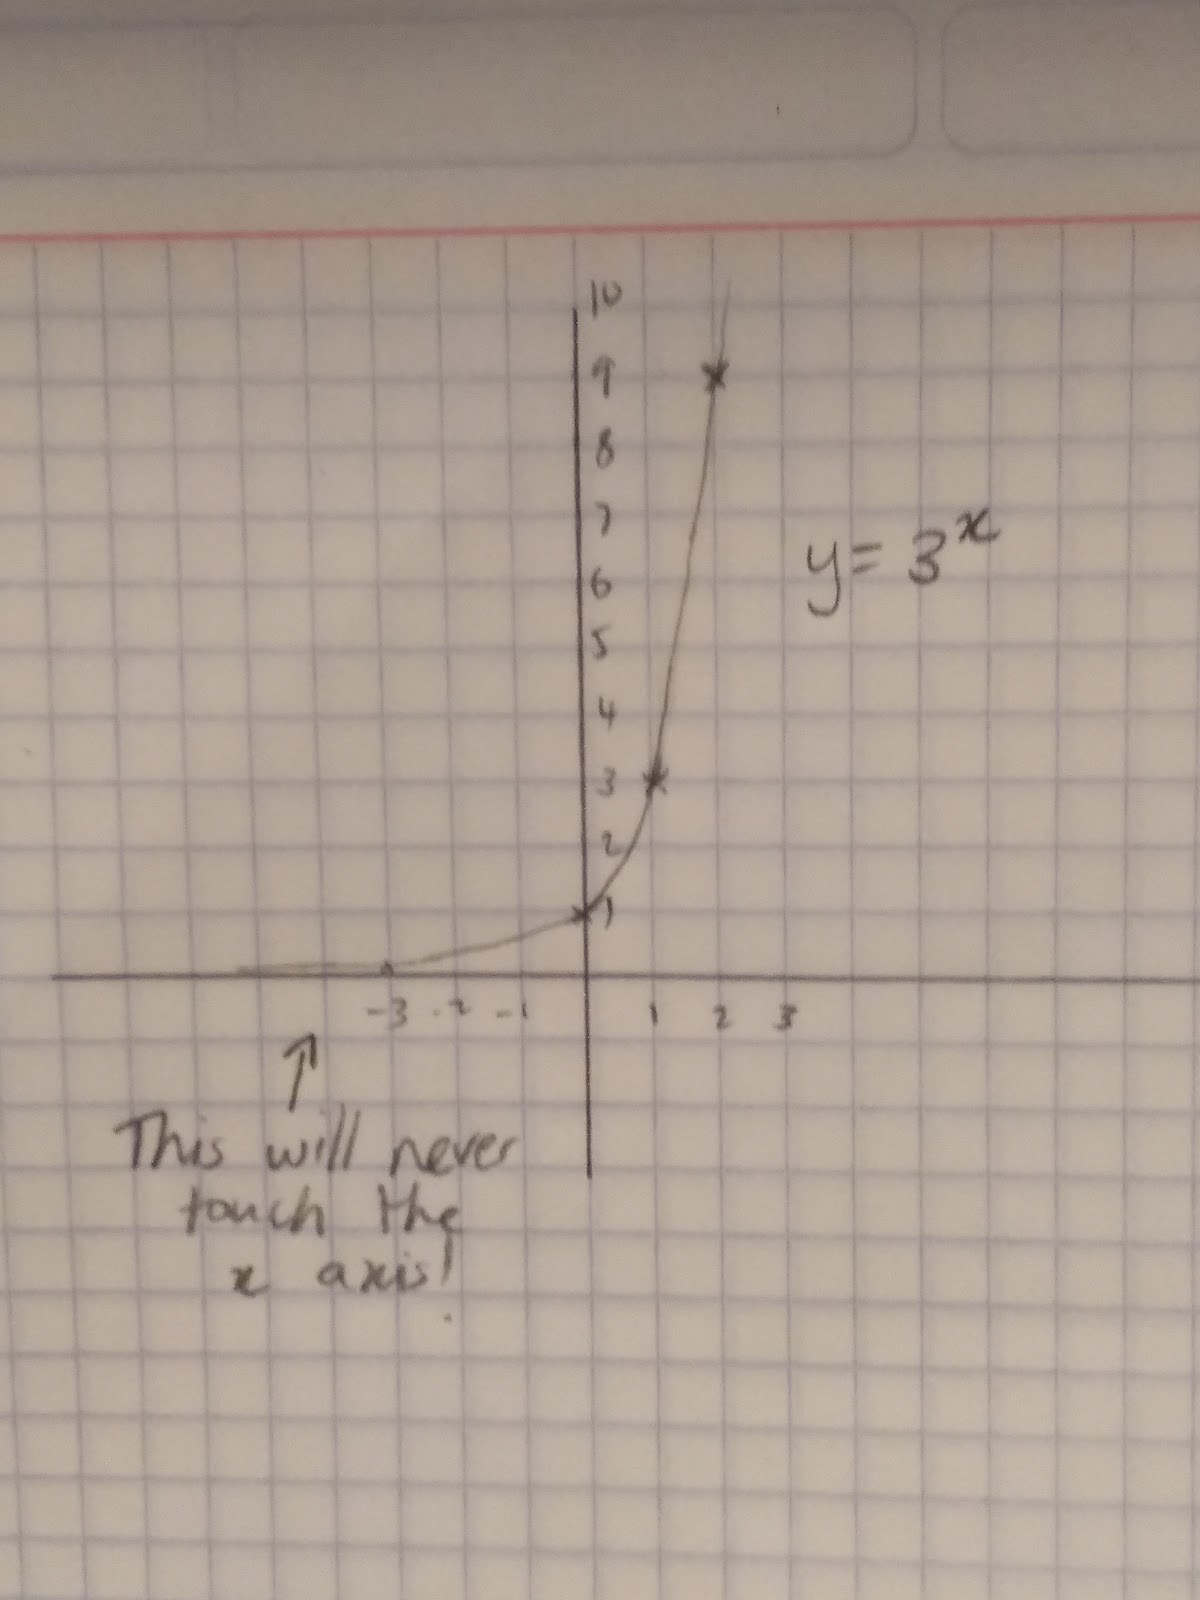 10
9
8
7
6
5
4
3
2
1
y = 3ˣ
-3 -2 -1 1 2 3
This will never
touch the
x axis!